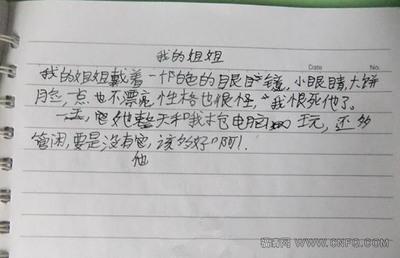 我的姐姐
Date No.
我的姐姐戴着一个白色的目艮目竟,小眼睛,大饼
脸,一点也不漂亮,性格也很怪,我恨死他了。
一天,她整天和我抢电脑玩,还多
管闲,要是没有它,该多好啊!
他
猫扑网 WWW.CNFG.COM